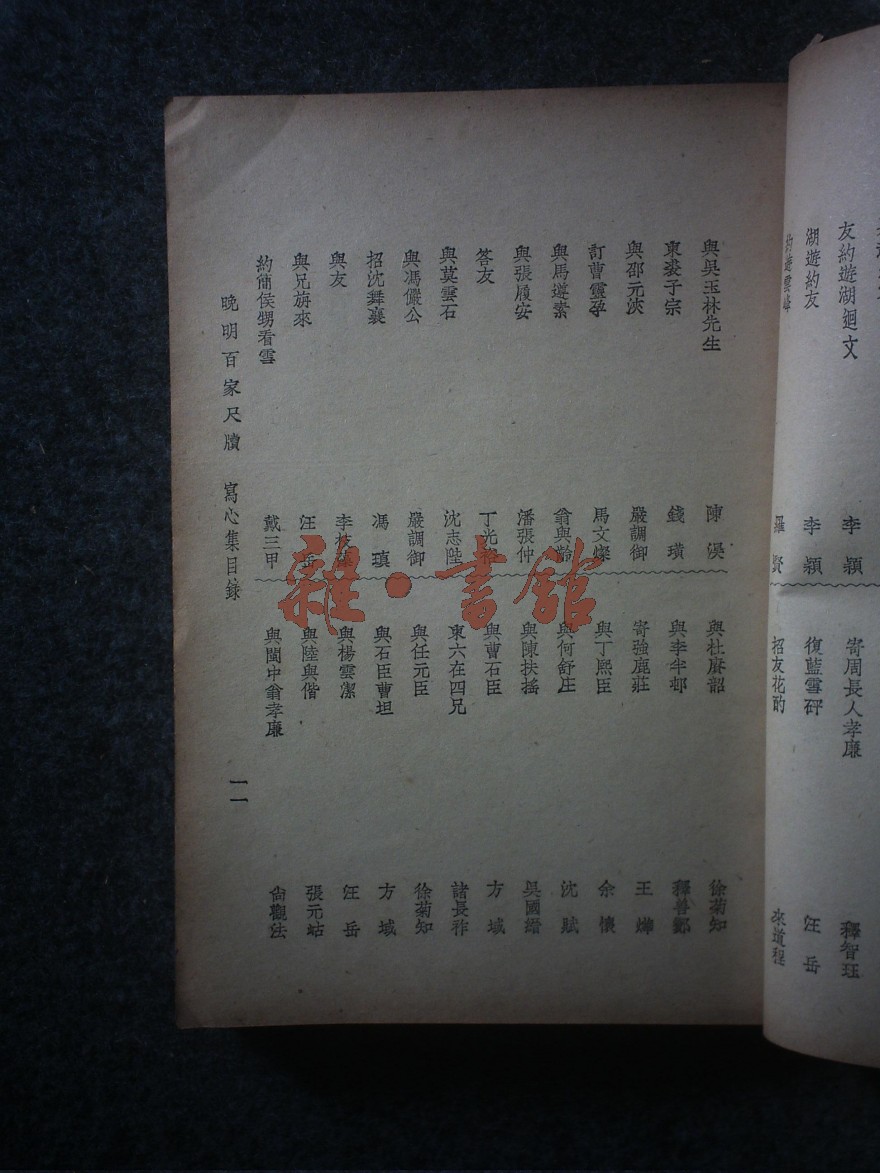 友約遊湖迴文
李穎
湖遊約友
李穎
約遊雲峰
羅賢
寄周長人孝廉
釋智珏
復藍雪砰
汪岳
招友花酌
來道程
與吳玉林先生
陳
柬裘子宗
錢璜
與邵元浹
嚴調御
訂曹靈孕
馬文燦
與馬遵素
翁與齡
與張履安
潘張仲
答友
丁光
與莫雲石
沈志陛
與馮儼公
嚴調御
招沈舞襄
馮瑱
與友
李枝
與兄旃來
汪岳
約簡侯甥看雪
戴三甲
與杜康韶
徐菊知
與李半邨
釋善
寄強鹿莊
王
與丁熙臣
余懷
與何舒庄
沈賦
與陳扶搖
吳國縉
與曹石臣
方域
柬六在四兄
諸長祚
與任元臣
徐菊知
與石臣曹坦
方域
與楊雲潔
汪岳
與陸與偕
張元站
與閩中翁孝廉
尙觀法
晚明百家尺牘 寫心集目錄
一一
雜·書館